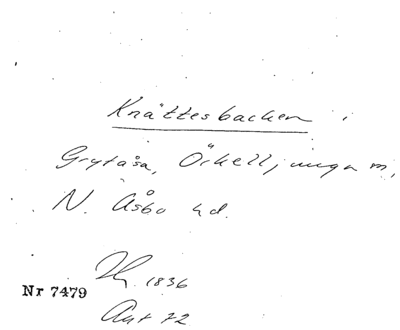 Knättesbacken i
Grytåsa, Örkelljunga m,
N. Åsbo hd.
1836
Nr 7479
Ant 72